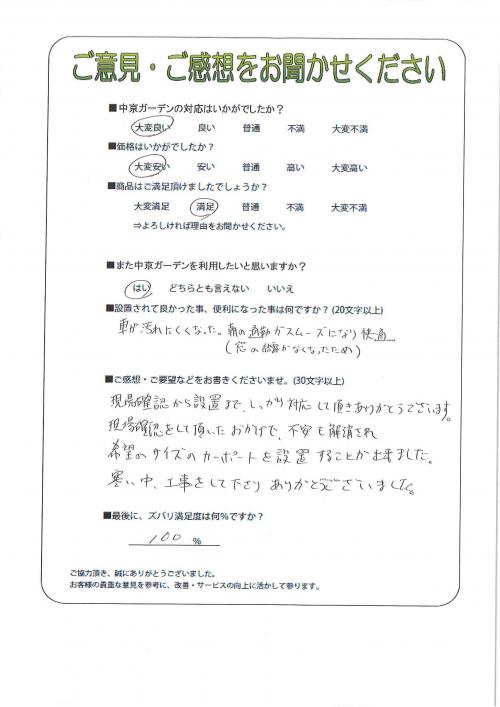 ご意見・ご感想をお聞かせください
■中京ガーデンの対応はいかがでしたか？
大変良い 良い 普通 不満 大変不満
■価格はいかがでしたか？
大変安い 安い 普通 高い 大変高い
■商品はご満足頂けましたでしょうか？
大変満足 満足 普通 不満 大変不満
⇒よろしければ理由をお聞かせください。
■また中京ガーデンを利用したいと思いますか？
はい どちらとも言えない いいえ
■設置されて良かった事、便利になった事は何ですか？(20文字以上)
車が汚れにくくなった。朝の通勤がスムーズになり快適
(窓の結露がなくなったため)
■ご感想・ご要望などをお書きくださいませ。(30文字以上)
現場確認から設置まで、しっかり対応して頂きありがとうございます。
現場確認をして頂いたおかげで、不安も解消され
希望のサイズのカーポートを設置することが出来ました。
寒い中、工事をして下さりありがとうございました。
■最後に、ズバリ満足度は何％ですか？
100 %
ご協力頂き、誠にありがとうございました。
お客様の貴重な意見を参考に、改善・サービスの向上に活かして参ります。